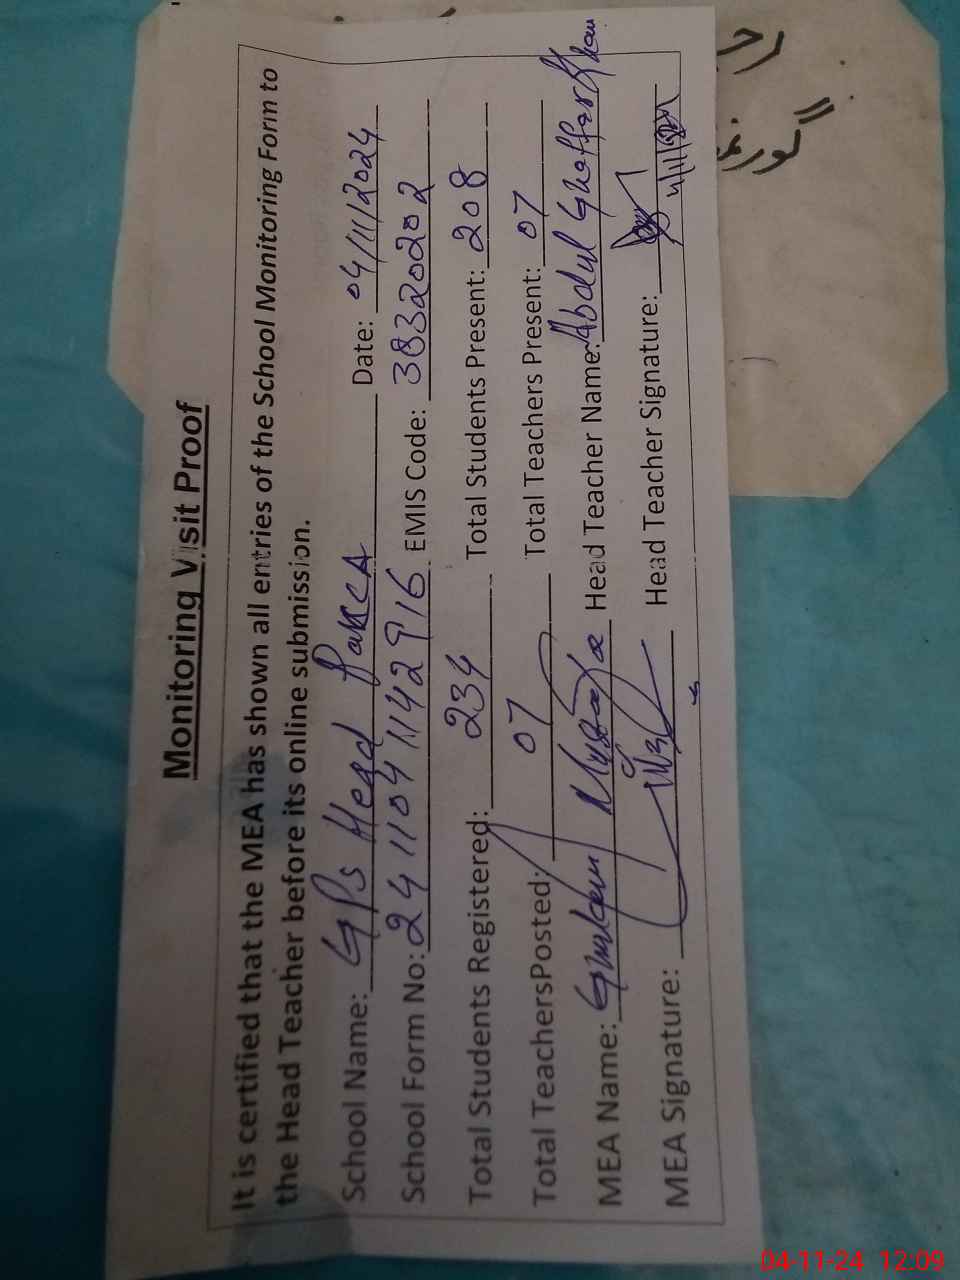 Monitoring Visit Proof
It is certified that the MEA has shown all entries of the School Monitoring Form to
the Head Teacher before its online submission.
School Name: GPS Head Pakka Date: 04/11/2024
School Form No: 24110411142916 EMIS Code: 38320202
Total Students Registered: 234 Total Students Present: 208
Total TeachersPosted: 07 Total Teachers Present: 07
MEA Name: Ghulam Mustafa Head Teacher Name: Abdul Ghaffar Khan
MEA Signature: Head Teacher Signature:
04-11-24 12:09